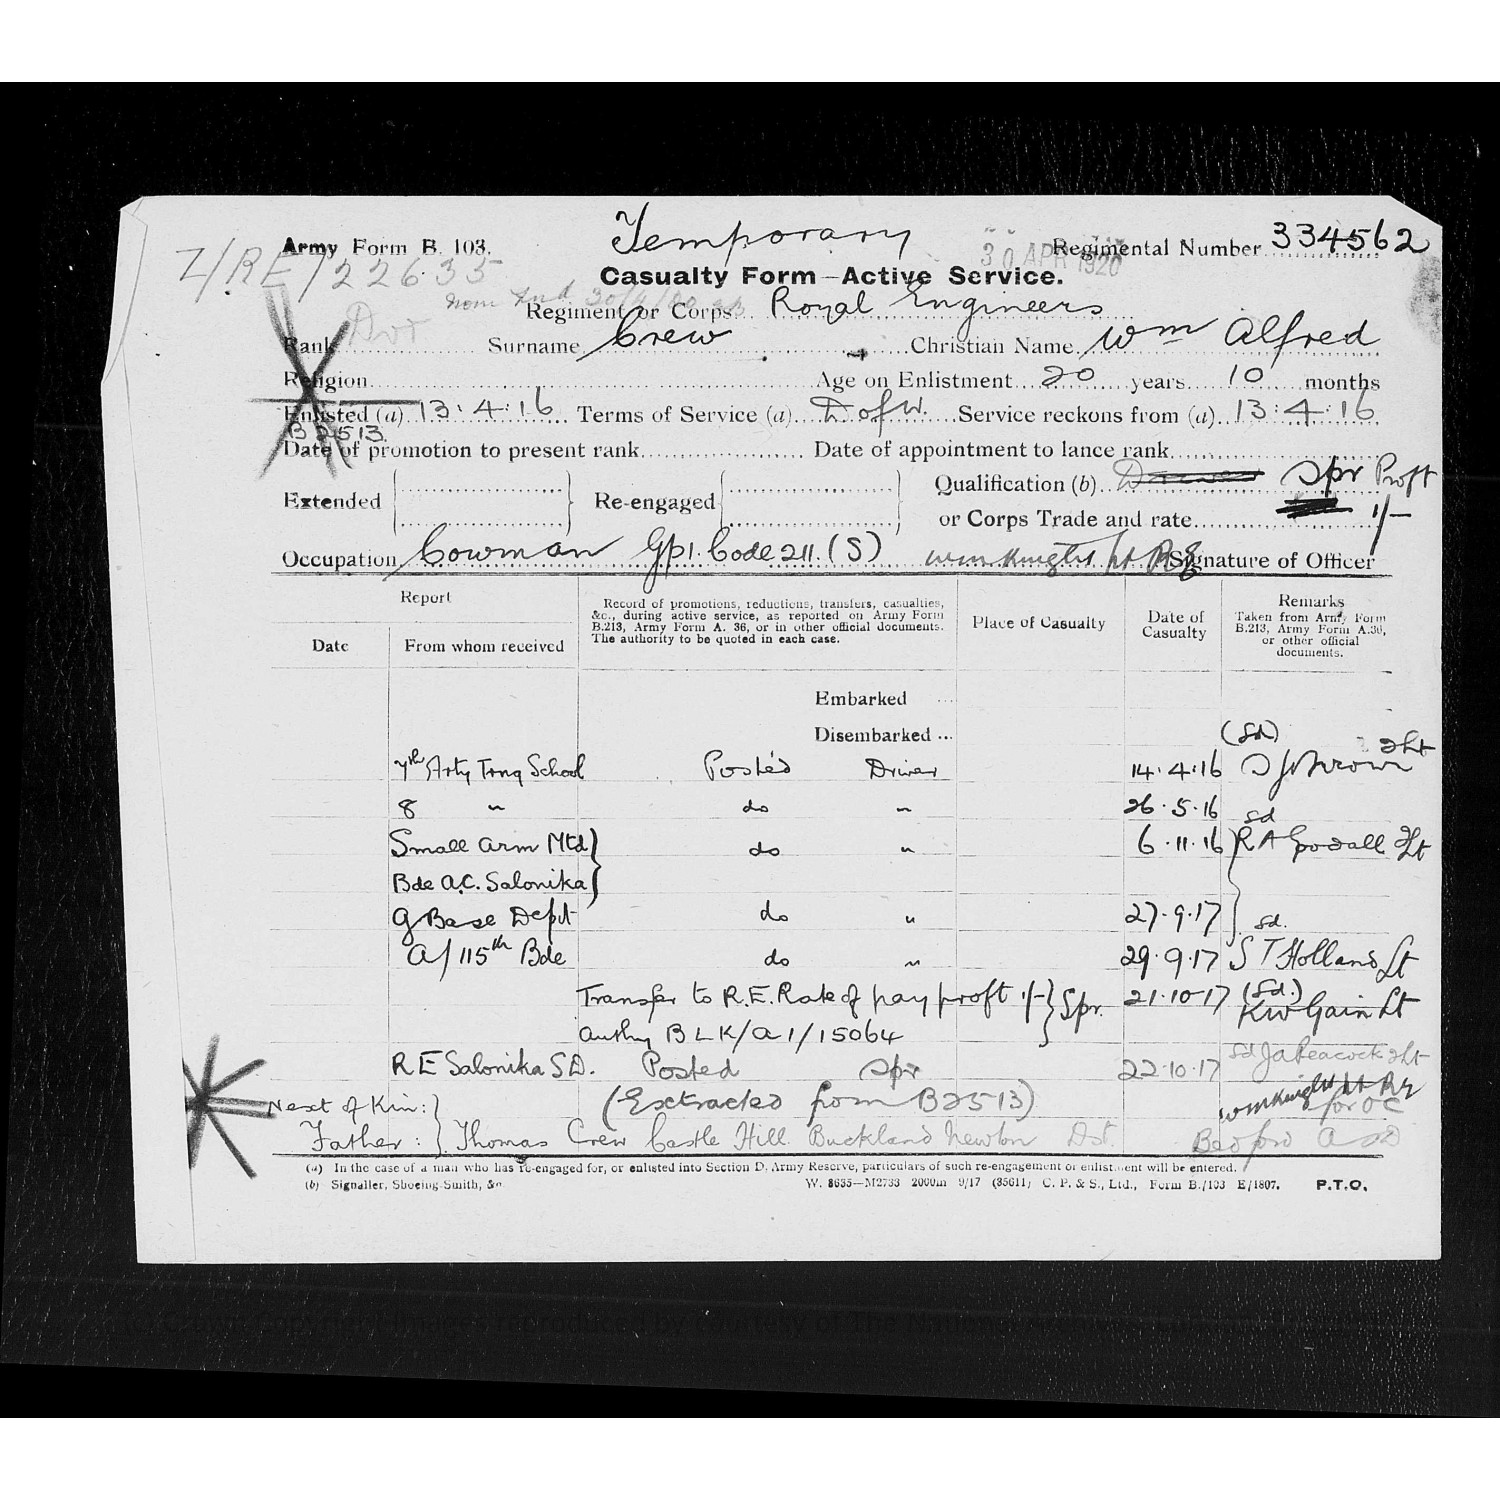 Temporary
Army Form B. 103.
Regimental Number 334562
Z/RE/22635
30 APR 1920
Casualty Form—Active Service.
Regiment or Corps Royal Engineers
Rank Surname Crew Christian Name Wm Alfred
Religion Age on Enlistment 20 years 10 months
Enlisted (a) 13.4.16 Terms of Service (a) D of W. Service reckons from (a) 13.4.16
B 2513
Date of promotion to present rank Date of appointment to lance rank
Extended Re-engaged Qualification (b) Spr Proft
or Corps Trade and rate 1/-
Occupation Cowman Gp1. Code 211. (S) Wm Knight Lt RE Signature of Officer
Report
Date
From whom received
Record of promotions, reductions, transfers, casualties, &c., during active service, as reported on Army Form B.213, Army Form A. 36, or in other official documents. The authority to be quoted in each case.
Place of Casualty
Date of Casualty
Remarks
Taken from Army Form B.213, Army Form A.36, or other official documents.
Embarked ...
Disembarked ...
(Sd)
7th Arty Trng School Posted Driver 14.4.16 Brown 2Lt
8 " do " 26.5.16
sd
Small Arm Mtd } do " 6.11.16 R A Goodall 2Lt
Bde A.C. Salonika }
G Base Dept do " 27.9.17 sd.
A/115th Bde do " 29.9.17 S T Holland Lt
Transfer to R.E. Rate of pay proft 1/- } Spr. 21.10.17 (Sd.)
Authy BLK/A1/15064 KW Gain Lt
R E Salonika S.D. Posted Spr 22.10.17 sd JA Peacock 2Lt
(Extracted from B2513) Wm Knight Lt RE
for OC
Next of Kin: }
Father: } Thomas Crew Castle Hill Buckland Newton Dst.
(a) In the case of a man who has re-engaged for, or enlisted into Section D, Army Reserve, particulars of such re-engagement or enlistment will be entered.
(b) Signaller, Shoeing-Smith, &c.
W. 8635—M2733 2000m 9/17 (35611) C. P. & S., Ltd., Form B./103 E/1807. P.T.O.